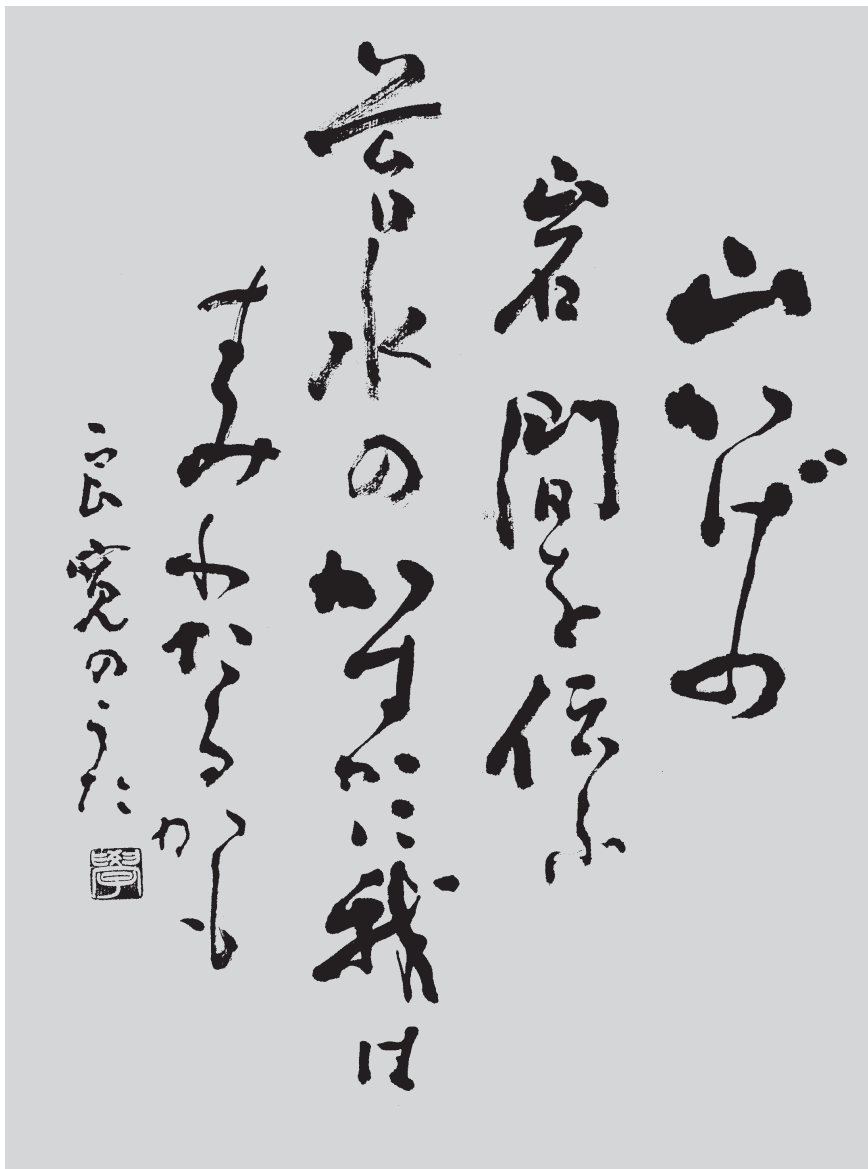 山かげの
岩間を伝ふ
苔水のかすかに我は
すみわたるかも
良寛のうた
學